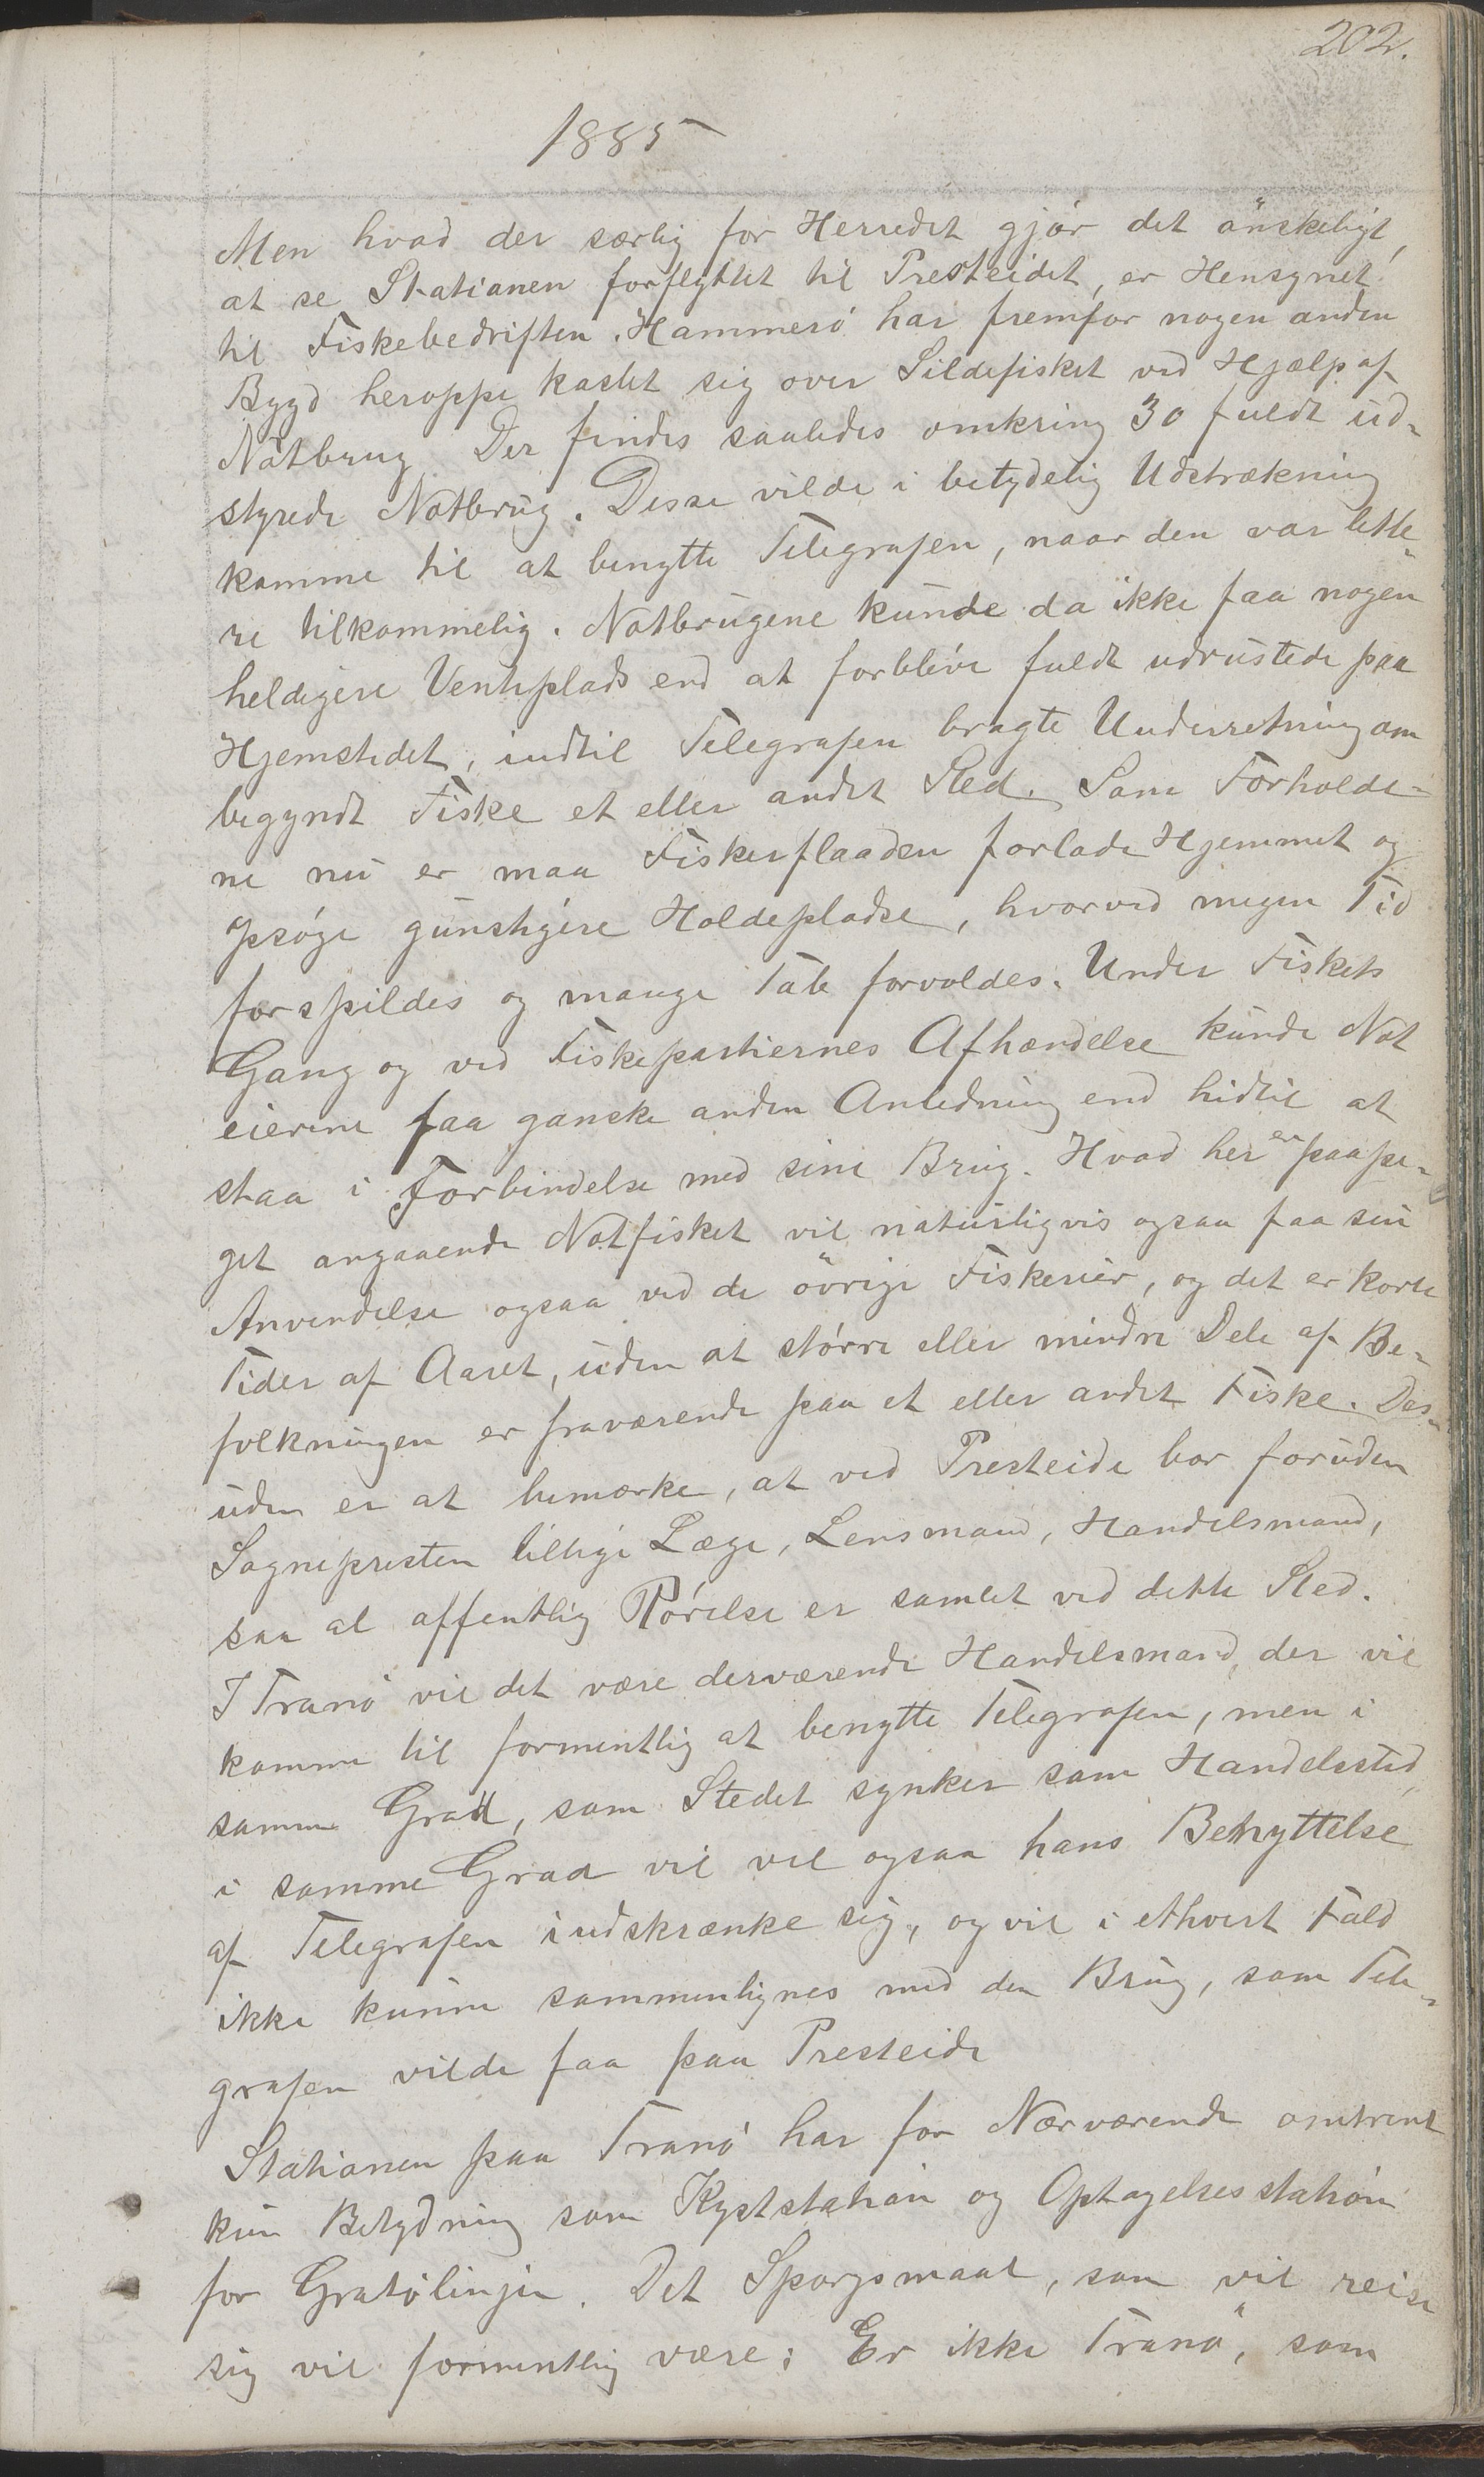 202.
1885
Men hvad der særlig for Herredet gjør det ønskeligt,
at se Stationen forflyttet til Presteidet, er Hensynet
til Fiskebedriften. Hammerø har fremfor nogen anden
Bygd heroppe kastet sig over Sildefisket ved Hjælp af
Notbrug Der findes saaledes omkring 30 fuldt ud-
styrede Notbrug. Disse vilde i betydelig Udstrækning
komme til at benytte Telegrafen, naar den var lette-
re tilkommelig. Notbrugene kunde da ikke faa nogen
heldigere Venteplads end at forblive fuldt udrustede paa
Hjemstedet, indtil Telegrafen bragte Underretning om
begyndt Fiske et eller andet Sted. Som Forholde-
ne nu er maa Fiskerflaaden forlade Hjemmet og
opsøge gunstigere Holdepladse, hvorved megen Tid
forspildes og mange Tab forvoldes. Under Fiskets
Gang og ved Fiskepartiernes Afhændelse kunde Not
eierene faa ganske anden Anledning end hidtil at
staa i Forbindelse med sine Brug. Hvad her er paape-
get angaaende Notfisket vil naturligvis ogsaa faa sin
Anvendelse ogsaa ved de øvrige Fiskerier, og det er korte
Tider af Aaret, uden at større eller mindre Dele af Be-
folkningen er fraværende paa et eller andet Fiske. Des-
uden er at bemærke, at ved Presteide bor foruden
Sognepresten tillige Læge, Lensmand, Handelsmand,
saa al offentlig Rørelse er samlet ved dette Sted.
I Tranø vil det være derværende Handelsmand, der vil
komme til formentlig at benytte Telegrafen, men i
samme Grad, som Stedet synker som Handelssted,
i samme Grad vil vel ogsaa hans Benyttelse
af Telegrafen indskrænke sig, og vil i ethvert Fald
ikke kunne sammenlignes med den Brug, som Tele-
grafen vilde faa paa Presteide
Stationen paa Tranø har for Nærværende omtrent
kun Betydning som Kyststation og Optagelsesstation
for Grøtølinjen. Det Spørgsmaal, som vil reise
sig vil formentlig være: Er ikke Tranø, som